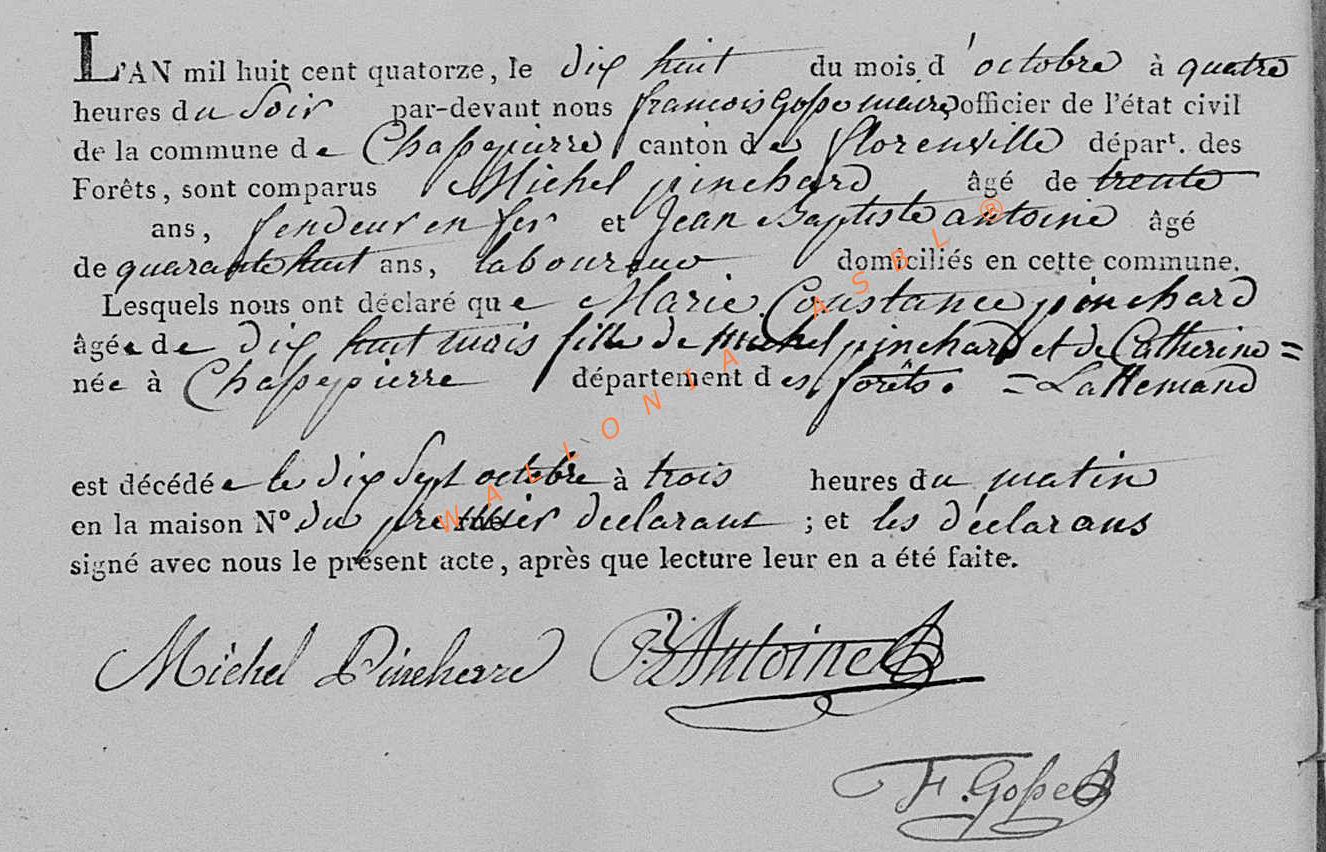 L'AN mil huit cent quatorze, le dix huit du mois d'octobre à quatre
heures du Soir par-devant nous francois Gosse maire officier de l'état civil
de la commune de Chassepierre canton de florenville départ. des
Forêts, sont comparus Michel pinchard âgé de trente
ans, fendeur en fer et Jean Baptiste antoine âgé
de quarante huit ans, laboureur domiciliés en cette commune.
Lesquels nous ont déclaré que Marie Constance pinchard
âgée de dix huit mois fille de michel pinchard et de Catherine =
née à Chassepierre département des forêts. = Lallemand
est décédée le dix Sept octobre à trois heures du matin
en la maison N° du premier declarant ; et les déclarans
signé avec nous le présent acte, après que lecture leur en a été faite.
Michel Pincherre JB Antoine
F. Gosse
WALLONIA ASBL ®